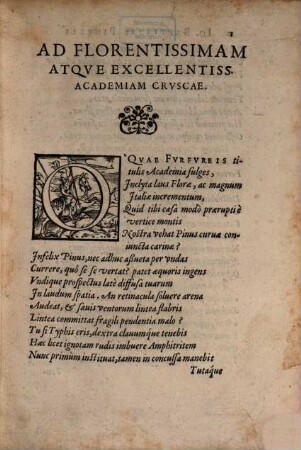 AD FLORENTISSIMAM
ATQVE EXCELLENTISS.
ACADEMIAM CRVSCAE.
O QVAE FVRFVREIS ti
tulis Academia fulges,
Inclyta laus Floræ, ac magnum
Italiæ incrementum,
Quid tibi cæsa modò prærupti è
vertice montis
Nostra vehat Pinus curuæ con-
iuncta carinæ?
Infelix Pinus, nec adhuc assueta per vndas
Currere, quò se se vertat? patet æquoris ingens
Vndique prospectus latè diffusa tuarum
In laudum spatia. An retinacula soluere arena
Audeat, & sæuis ventorum lintea flabris
Lintea committat fragili pendentia malo?
Tu si Typhis eris, dextra clauumque tenebis
Hæc licet ignotam rudis imbuere Amphitritem
Nunc primùm instituat, tamen inconcussa manebit
Tutaq́ue